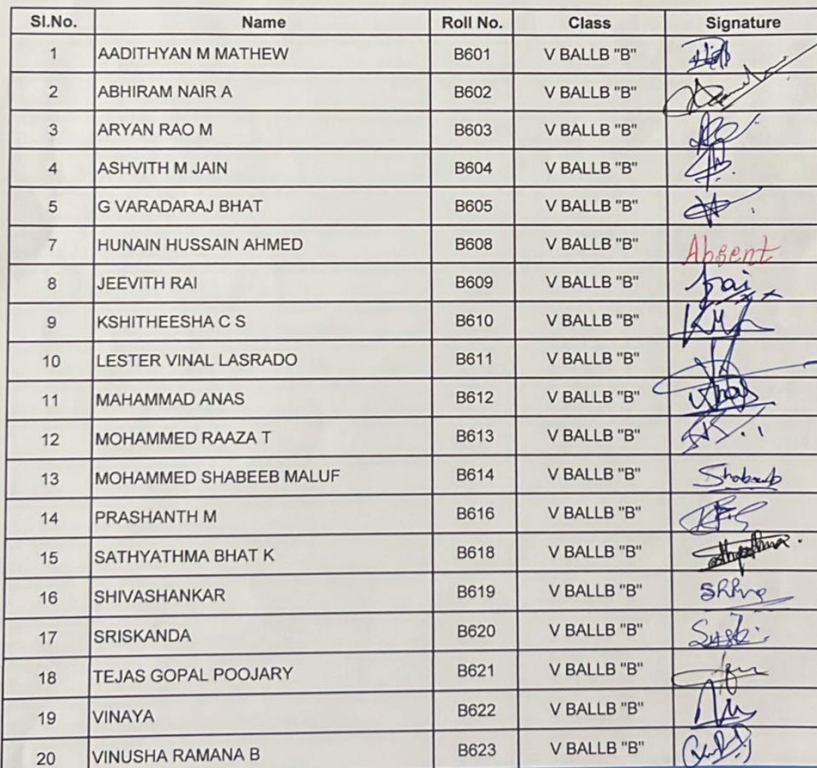 Sl.No. Name Roll No. Class Signature
1 AADITHYAN M MATHEW B601 V BALLB "B"
2 ABHIRAM NAIR A B602 V BALLB "B"
3 ARYAN RAO M B603 V BALLB "B"
4 ASHVITH M JAIN B604 V BALLB "B"
5 G VARADARAJ BHAT B605 V BALLB "B"
7 HUNAIN HUSSAIN AHMED B608 V BALLB "B" Absent
8 JEEVITH RAI B609 V BALLB "B"
9 KSHITHEESHA C S B610 V BALLB "B"
10 LESTER VINAL LASRADO B611 V BALLB "B"
11 MAHAMMAD ANAS B612 V BALLB "B"
12 MOHAMMED RAAZA T B613 V BALLB "B"
13 MOHAMMED SHABEEB MALUF B614 V BALLB "B"
14 PRASHANTH M B616 V BALLB "B"
15 SATHYATHMA BHAT K B618 V BALLB "B"
16 SHIVASHANKAR B619 V BALLB "B"
17 SRISKANDA B620 V BALLB "B"
18 TEJAS GOPAL POOJARY B621 V BALLB "B"
19 VINAYA B622 V BALLB "B"
20 VINUSHA RAMANA B B623 V BALLB "B"